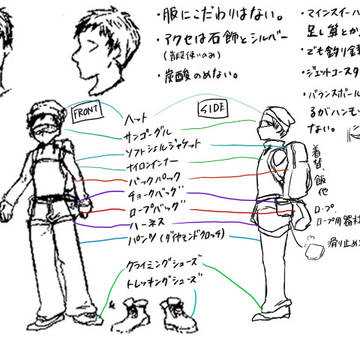 ・服にこだわりはない。
・アクセは石飾とシルバー
・炭酸のめない。
・マインスイー
足し算とか
・でも釣り
・ジェットコースタ
・バランスボール
るがハンモ
ない。
FRONT
SIDE
ヘット
サンゴーグル
ソフトシェルジャケット
ナイロンインナー
バックパック
チョークバッグ
ロープバッグ
ハーネス
パンツ(ダイヤモンドクロッチ)
クライミングシューズ
トレッキングシューズ
着替、飯、他
ロープ
ロープ用器材
滑り止め